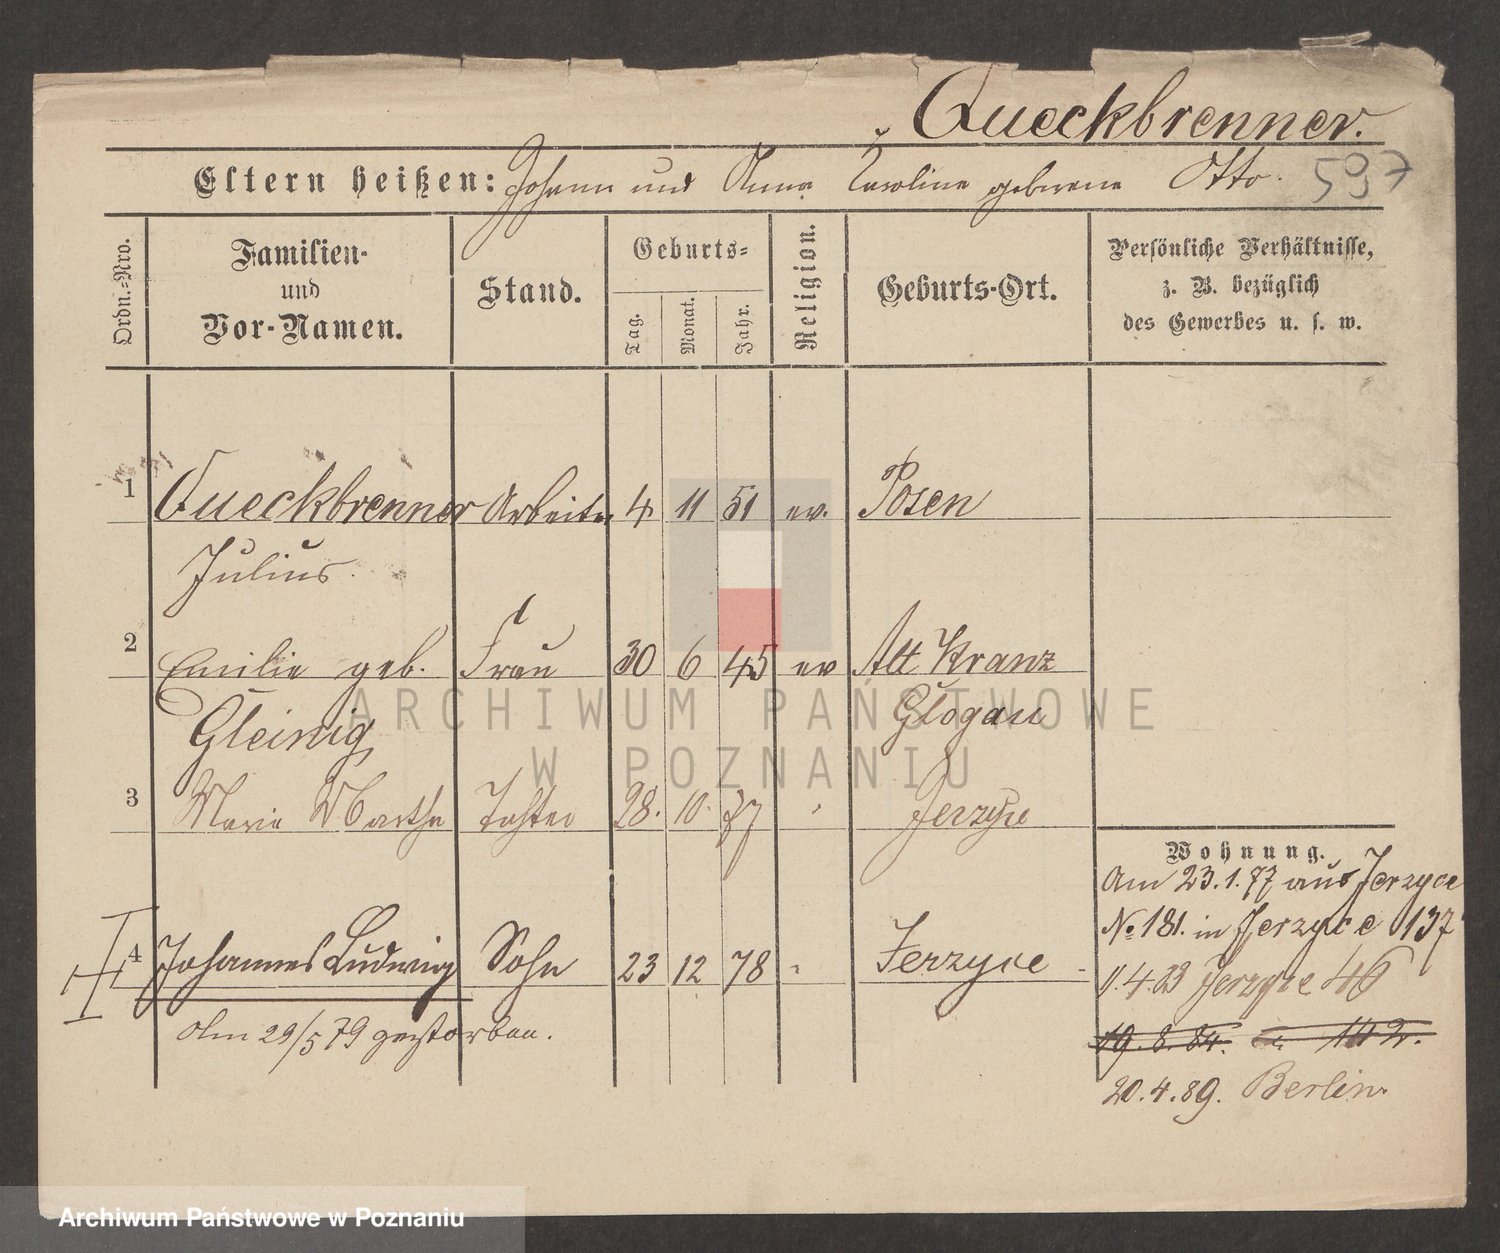 Queckbrenner.
Eltern heißen: Johann und Anna Karoline geborene Otto.
597
Ordn.-Nro.
Familien- und Vor-Namen.
Stand.
Geburts-
Tag.
Monat.
Jahr.
Religion.
Geburts-Ort.
Persönliche Verhältnisse,
z. B. bezüglich
des Gewerbes u. s. w.
1 Queckbrenner Arbeiter 4 11 51 ev. Posen
Julius.
2 Emilie geb. Frau 30 6 45 ev Alt Kranz
Gleinig Glogau
3 Marie Martha Tochter 28. 10. 77 Jerzyce
Wohnung.
Am 23.1.77 aus Jerzyce
No 181. in Jerzyce 137
4 Johannes Ludwig Sohn 23 12 78 " Jerzyce
11.4.83 Jerzyce 46
Am 29/5 79 gestorben.
19.8.84. 142.
20.4.89. Berlin.
ARCHIWUM PAŃSTWOWE
W POZNANIU
Archiwum Państwowe w Poznaniu